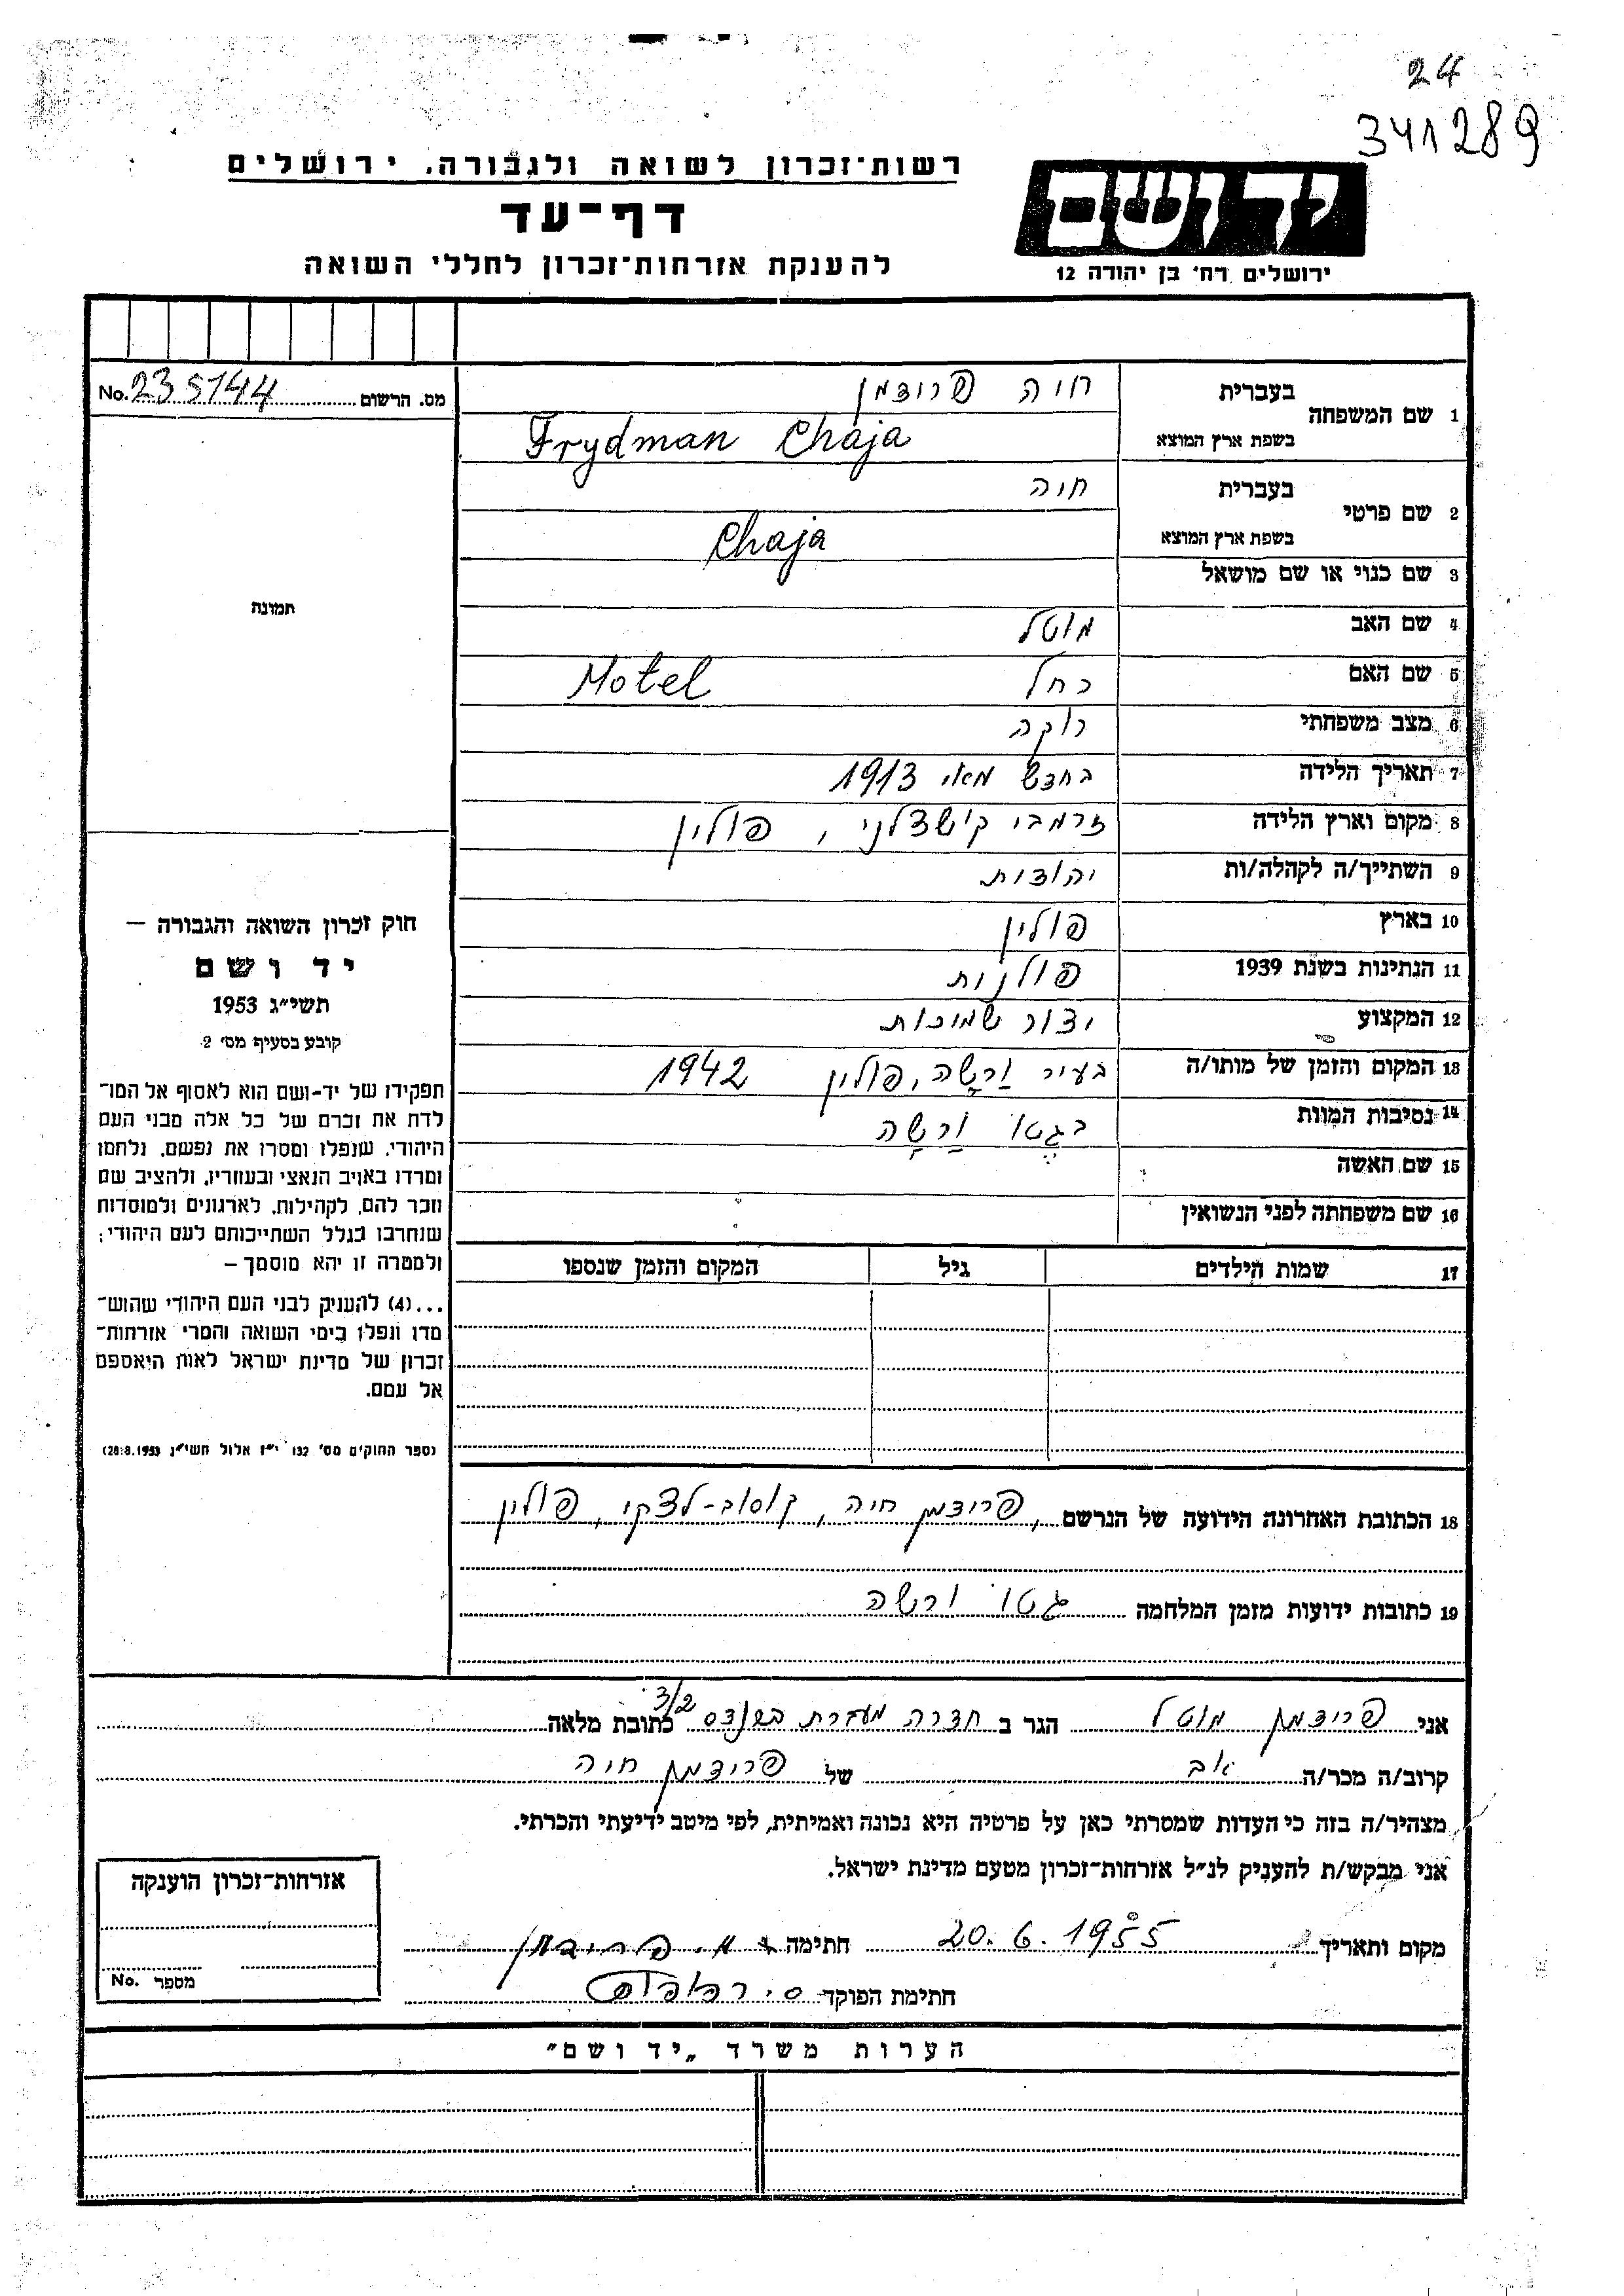 24
341289
יד ושם
ירושלים רח' בן יהודה 12
רשות-זכרון לשואה ולגבורה, ירושלים
דף-עד
להענקת אזרחות-זכרון לחללי השואה
מס. הרשום No. 235144
1 שם המשפחה בעברית חיה פרידמן
בשפת ארץ המוצא Frydman Chaja
2 שם פרטי בעברית חיה
בשפת ארץ המוצא Chaja
3 שם כנוי או שם מושאל
4 שם האב מוטל
5 שם האם רחל Motel
6 מצב משפחתי רוקה
7 תאריך הלידה בחדש מאי 1913
8 מקום וארץ הלידה זרמבי קושצלני, פולין
9 השתייך/ה לקהלה/ות יהודות
10 בארץ פולין
11 הנתינות בשנת 1939 פולנית
12 המקצוע יצור שמיכות
13 המקום והזמן של מותו/ה בעיר וַרְשָׁה, פולין 1942
14 נסיבות המוות בגטו וַרְשָׁה
15 שם האשה
16 שם משפחתה לפני הנשואין
17 שמות הילדים גיל המקום והזמן שנספו
18 הכתובת האחרונה הידועה של הנרשם, פרידמן חיה, קוסוב-לצקי, פולין
19 כתובות ידועות מזמן המלחמה גטו ורשה
תמונה
חוק זכרון השואה והגבורה –
יד ושם
תשי״ג 1953
קובע בסעיף מס' 2
תפקידו של יד-ושם הוא לאסוף אל המו-
לדת את זכרם של כל אלה מבני העם
היהודי, שנפלו ומסרו את נפשם, נלחמו
ומרדו באויב הנאצי ובעוזריו, ולהציב שם
וזכר להם, לקהילות, לארגונים ולמוסדות
שנחרבו בגלל השתייכותם לעם היהודי;
ולמטרה זו יהא מוסמך –
...(4) להעניק לבני העם היהודי שהוש-
מדו ונפלו בימי השואה והמרי אזרחות-
זכרון של מדינת ישראל לאות היאספם
אל עמם.
(ספר החוקים מס' 132 י״ז אלול תשי״ג 28.8.1953)
אני פרידמן מוטל הגר ב חדרה מעברת ברנדס 3/2 כתובת מלאה
קרוב/ה מכר/ה אב של פרידמן חיה
מצהיר/ה בזה כי העדות שמסרתי כאן על פרטיה היא נכונה ואמיתית, לפי מיטב ידיעתי והכרתי.
אני מבקש/ת להעניק לנ״ל אזרחות-זכרון מטעם מדינת ישראל.
מקום ותאריך 20.6.1955 חתימה מ. פרידמן
חתימת הפוקד
אזרחות-זכרון הוענקה
מספר No.
הערות משרד „יד ושם״